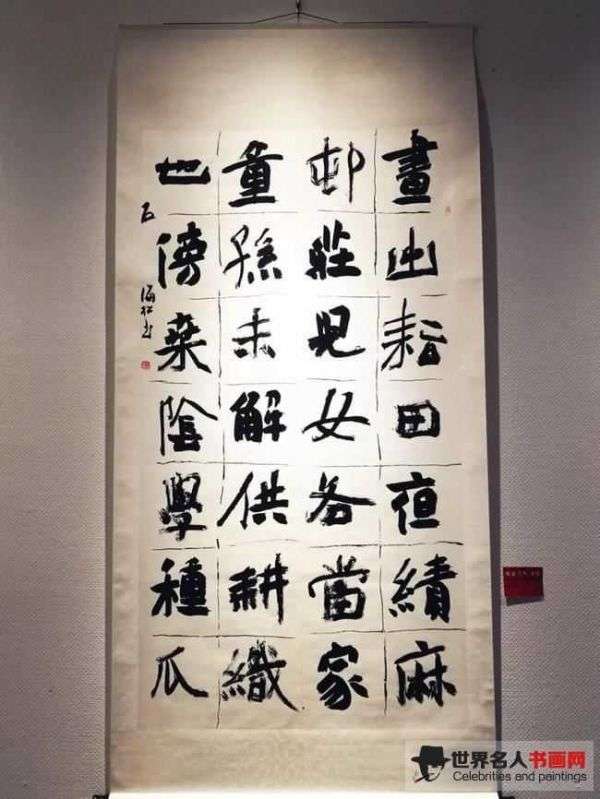 晝出耘田夜績麻
邨莊兒女各當家
童孫未解供耕織
也傍桑陰學種瓜
海松书
世界名人书画网
Celebrities and paintings